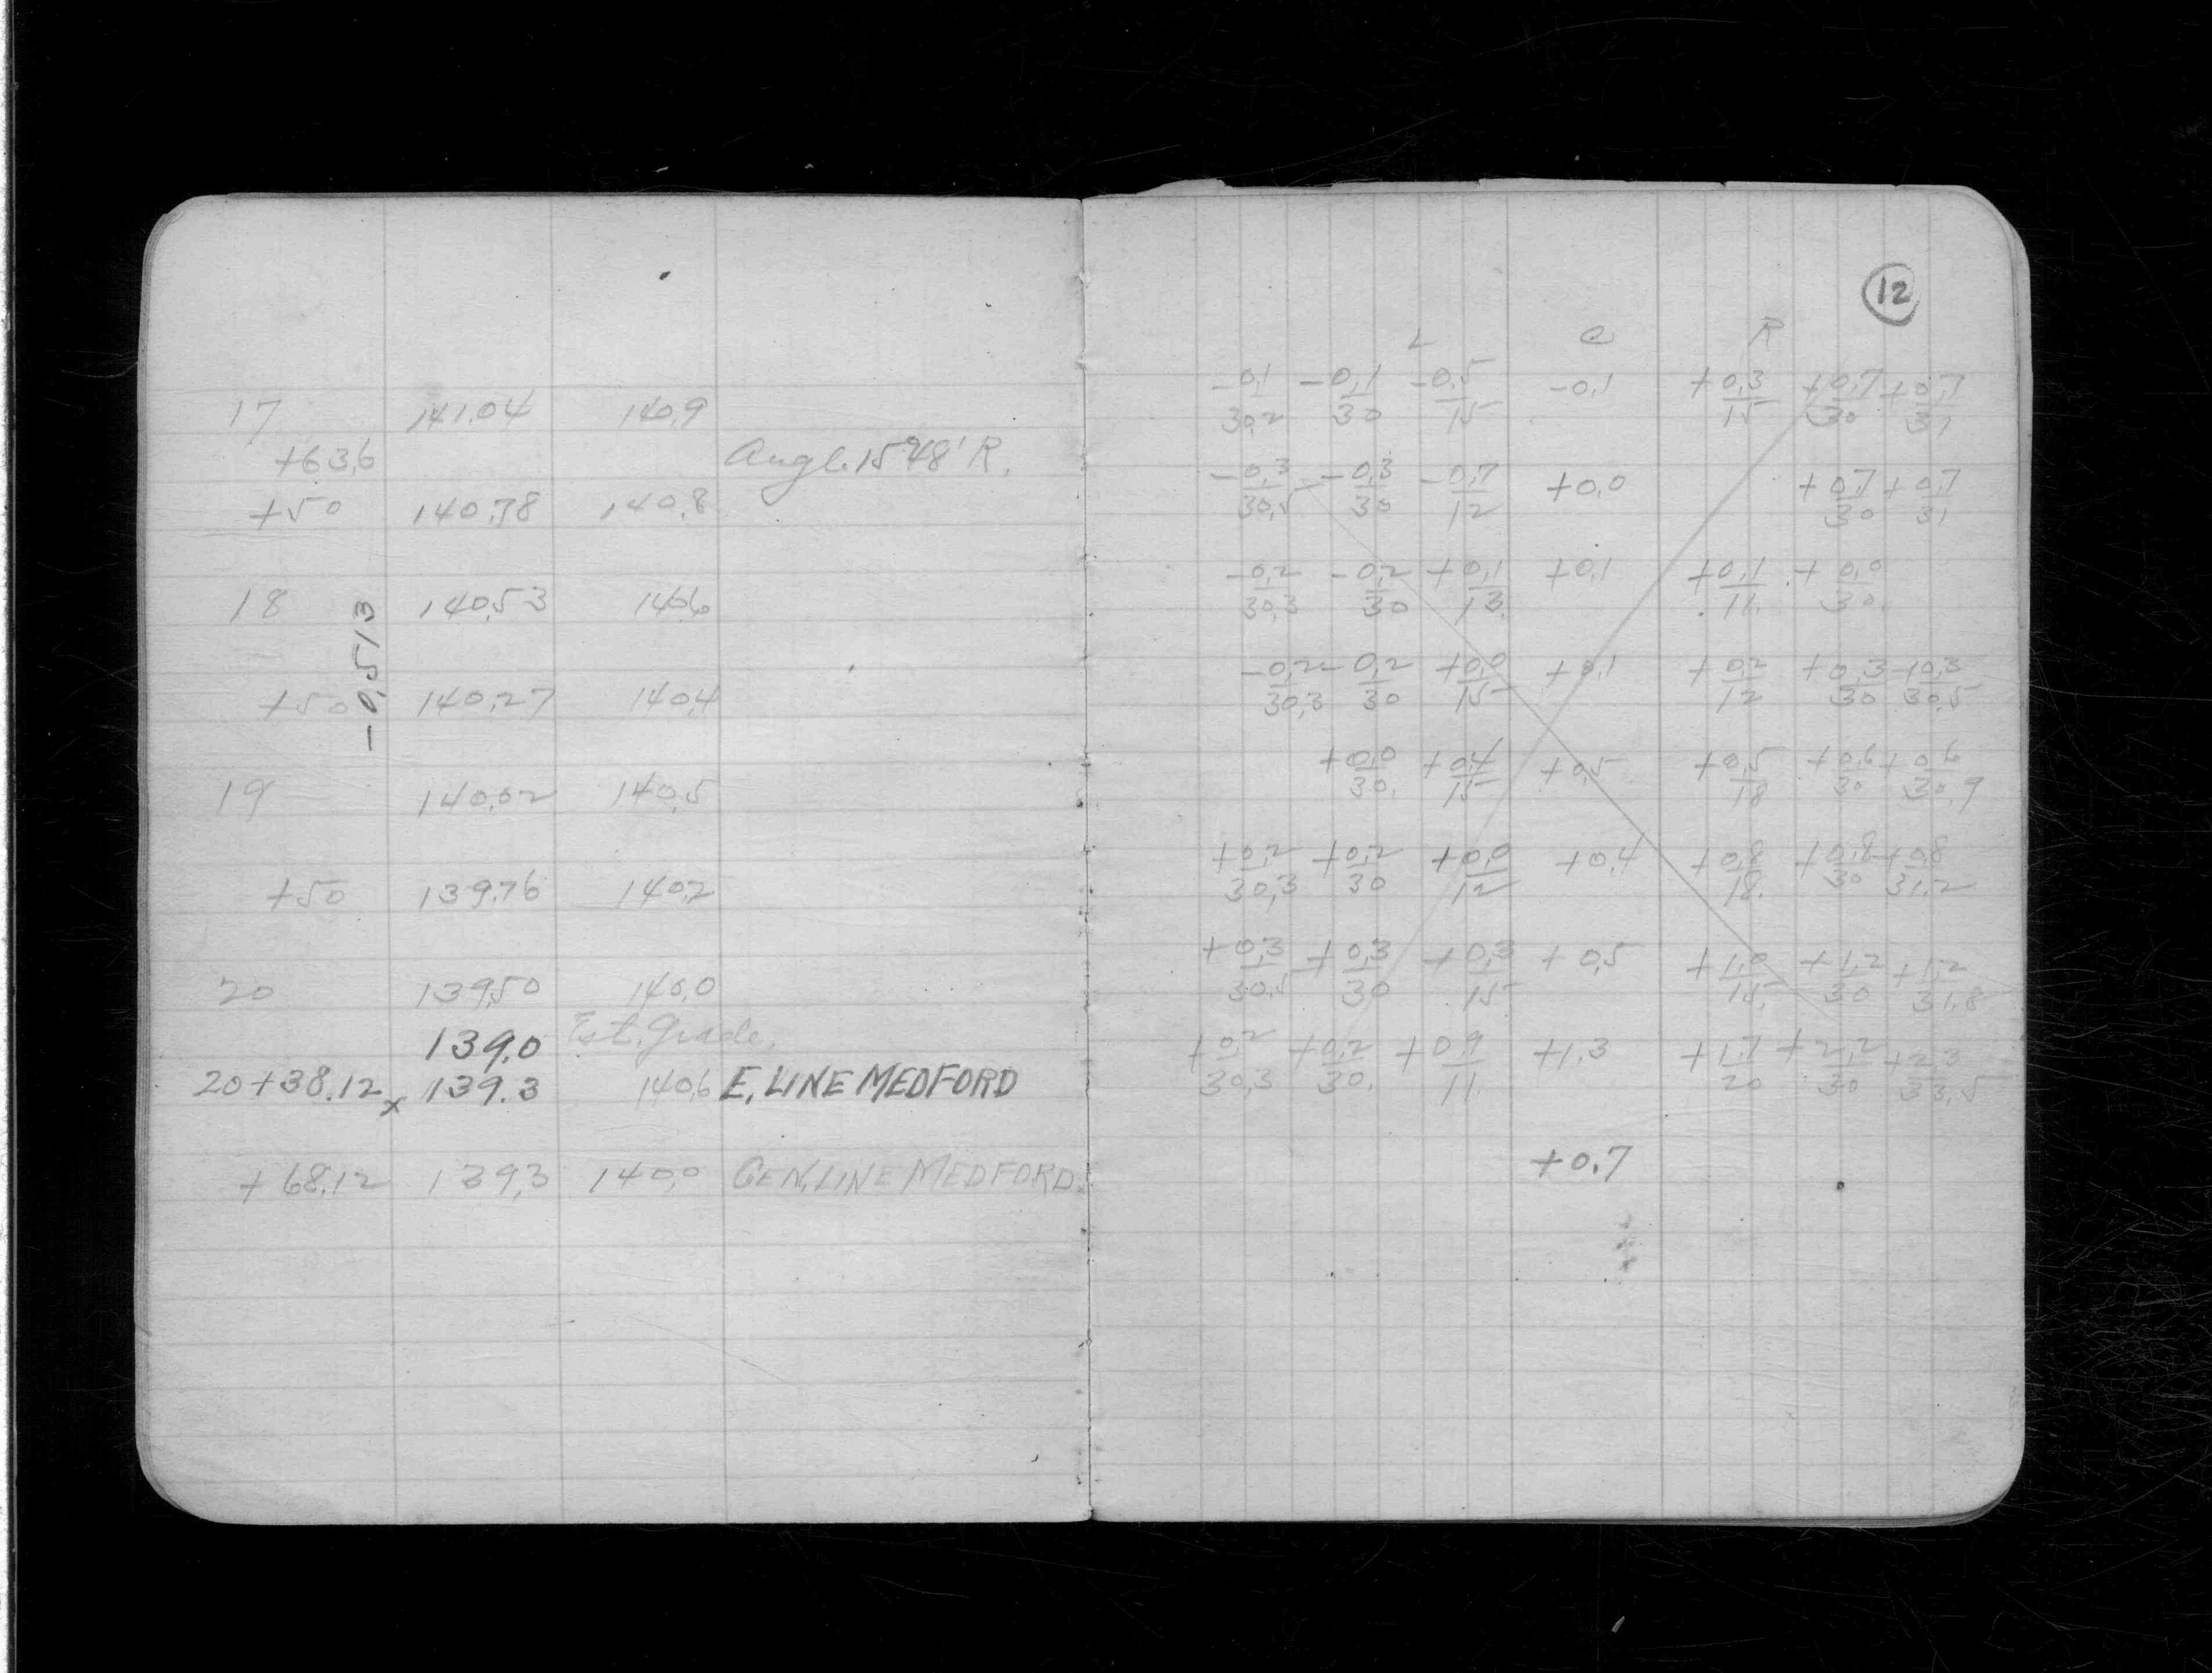 17 141.04 140.9
+63.6 Angle 15°48' R.
+50 140.78 140.8
18 140.53 140.6
-0.513
+50 140.27 140.4
19 140.02 140.5
+50 139.76 140.2
20 139.50 140.0
139.0 Est. Grade.
20+38.12 x 139.3 140.6 E. LINE MEDFORD
+68.12 139.3 140.0 CEN. LINE MEDFORD
12
L C R
-0.1/30.2 -0.1/30 -0.5/15 -0.1 +0.3/15 +0.7/30 +0.7/31
-0.3/30.5 -0.3/30 -0.7/12 +0.0 +0.7/30 +0.7/31
-0.2/30.3 -0.2/30 +0.1/13. +0.1 +0.1/11. +0.0/30.
-0.2/30.3 -0.2/30 +0.0/15 +0.1 +0.2/12 +0.3/30 +0.3/30.5
+0.0/30. +0.4/15 +0.5 +0.5/18 +0.6/30 +0.6/30.9
+0.2/30.3 +0.2/30 +0.0/12 +0.4 +0.8/18. +0.8/30 +0.8/31.2
+0.3/30.5 +0.3/30 +0.3/15 +0.5 +1.0/15. +1.2/30 +1.2/31.8
+0.2/30.3 +0.2/30. +0.9/11. +1.3 +1.7/20 +2.2/30 +2.3/33.5
+0.7